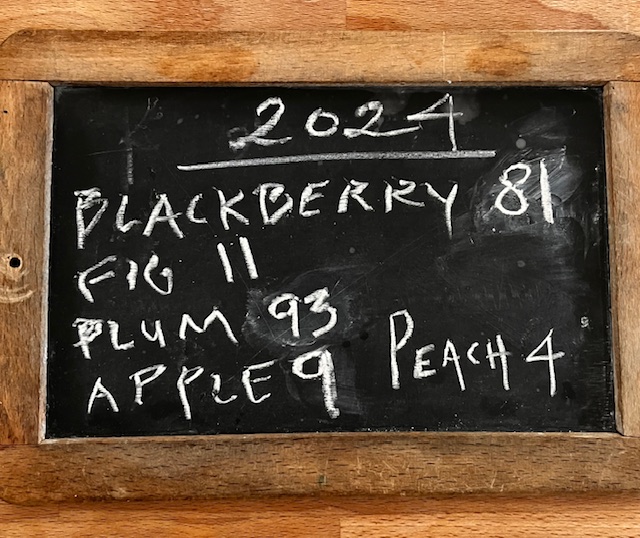 2024
BLACKBERRY 81
FIG 11
PLUM 93
APPLE 9 PEACH 4